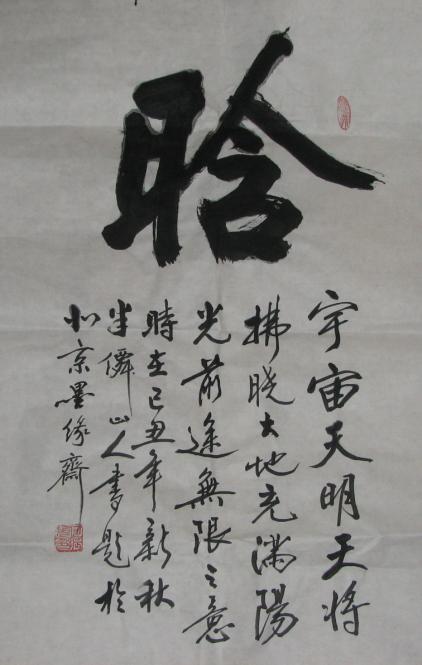 晗
宇宙天明天将
拂晓大地充满陽
光前途無限之意
時在己丑年新秋
半僊山人書題於
北京墨缘齋